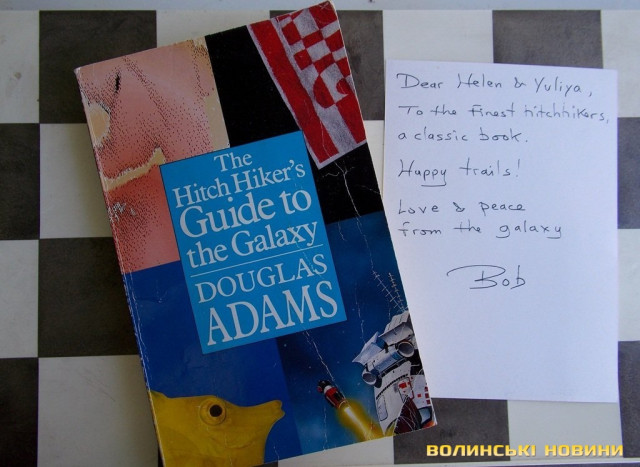 The
Hitch Hiker's
Guide to
the Galaxy
DOUGLAS
ADAMS
Dear Helen & Yuliya,
To the finest hitchhikers,
a classic book.
Happy trails!
Love & peace
from the galaxy
Bob
ВОЛИНСЬКІ НОВИНИ